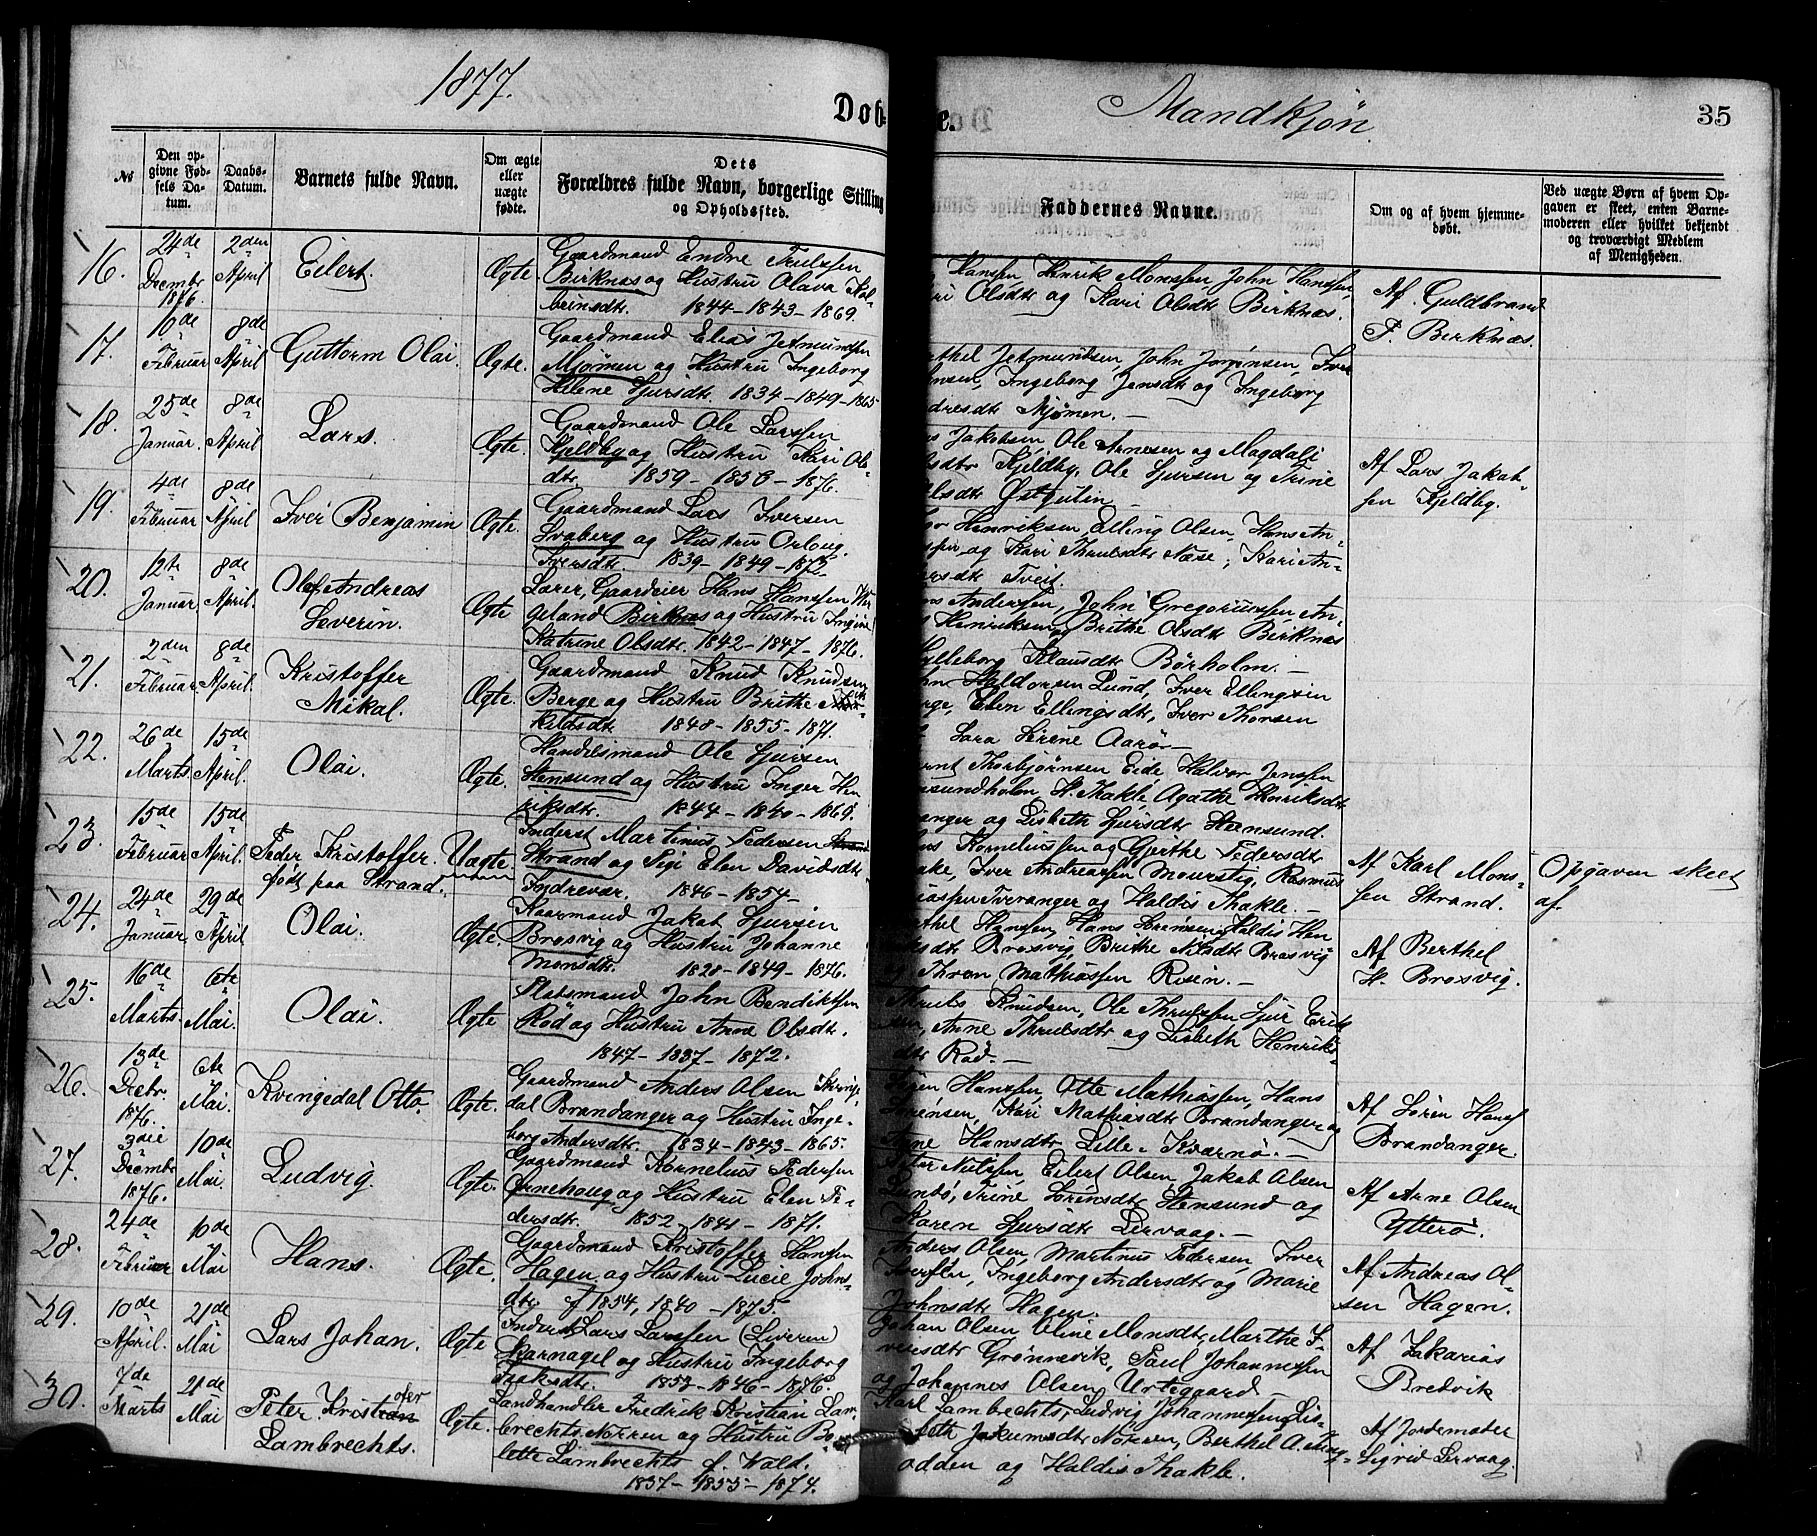 1877.
Døb=
e.
Mandkjøn
35
№
Den op-
givne Fød-
sels Da-
tum.
Daabs-
Datum.
Barnets fulde Navn.
Om ægte
eller
uægte
fødte.
Dets
Forældres fulde Navn, borgerlige Stilling
og Opholdssted.
Faddernes Navne.
Om og af hvem hjemme-
døbt.
Ved uægte Børn af hvem Op-
gaven er skeet, enten Barne-
moderen eller hvilket bekjendt
og troværdigt Medlem
af Menigheden.
16.
24de
Decembr
1876.
2den
April
Eilert.
Ægte.
Gaardmand Endre Trulssen
Birknæs og Hustru Olava Kol-
beinsdtr. 1844-1843-1869.
Hanssen, Henrik Monssen, John Hanssen,
Olsdtr og Kari Olsdtr Birknæs.
Af Guldbrand
T. Birknæs.
17.
10de
Februar
8de
April
Guttorm Olai.
Ægte.
Gaardmand Elias Jetmundsen
Mjømen og Hustru Ingeborg
Helene Sjursdtr. 1834-1849-1865
thel Jetmundsen, John Jørgensen, Iver
nsen, Ingeborg Jensdtr og Ingeborg
dresdtr Mjømen.-
18.
25de
Januar.
8de
April.
Lars.
Ægte.
Gaardmand Ole Larssen
Kjeldby og Hustru Kari Ole-
dtr. 1859-1856-1876.
s Jakobsen, Ole Arnesen og Magdali
lsdtr Kjeldby, Ole Sjursen og Trine
lsdtr Østgulen
Af Lars Jakob-
sen Kjeldby.
19.
4de
Februar
8de
April
Iver Benjamin
Ægte.
Gaardmand Lars Iversen
Svaberg og Hustru Orloug
Iversdtr. 1839-1849-1872.
Henriksen, Elling Olsen, Hans An-
sen og Kari Thrulsdtr Næse, Kari An-
rsdtr Tveit.
20.
12te
Januar
8de
April.
Olaf Andreas
Severin.
Ægte
Lærer, Gaardeier Hans Hanssen Wer
geland Birknæs og Hustru Ingine
Katrine Olsdtr. 1842-1847-1876.
s Anderssen, John Gregoriussen, An-
Henriksen og Brithe Olsdtr Birknæs
Sylleborg Klausdtr Børholm.-
21.
2den
Februar
8de
April.
Kristoffer
Mikal.
Ægte.
Gaardmand Knud Knudsen
Berge og Hustru Brithe
kildsdtr. 1848-1855-1871.
hn Haldorsen Lund, Iver Ellingsen
rge, Elen Ellingsdtr, Iver Thorsen
Lara Sirene Aarø-
22.
26de
Marts
15de
April.
Olai.
Ægte.
Handelsmand Ole Sjursen
Hensund og Hustru Inger Hen
riksdtr. 1844-1840-1869.
rnt Thorbjørnsen Eide, Halvor Jenssen
nsundholm, H. Thakle, Agathe Henriksdtr
anger og Lisbeth Sjursdtr Hensund.
23.
15de
Februar
15de
April.
Peder Kristoffer.
født paa Strand.
Uægte
Inderst Martinus Pedersen
Strand og Pige Elen Davidsdtr
Indrevær. 1846-1854-
us Korneliussen og Gjerthe Pedersdtr
ake, Iver Andreassen Mourstig, Rasmus
iassen Tveranger og Haldis Thakle.-
Af Karl Mons-
sen Strand.
Opgaven skeet
af
24.
24de
Januar.
29de
April
Olai.
Ægte.
Kaarmand Jakob Sjursen
Brosvig og Hustru Johanne
Monsdtr. 1828-1849-1876.
thel Hanssen, Hans Sørensen, Haldis Han
lsdtr Brosvig, Brithe Nilsdtr Brosvig
g Thron Mathiassen Risen.-
Af Berthel
H. Brosvig.
25.
16de
Marts.
6te
Mai.
Olai.
Ægte
Pladsmand John Bendiktsen
Rød og Hustru Anne Olsdtr.
1847-1837-1872.
Thruls Knudsen, Ole Thrulssen, Sjur Erik
sen, Anne Thrulsdtr og Lisbeth Henriks-
dtr Rød.-
26.
13de
Decbr.
1876.
6te
Mai.
Kvingedal Otto.
Ægte.
Gaardmand Anders Olsen Kvinge
dal Brandanger og Hustru Inge-
borg Andersdtr. 1834-1843-1865.
Hanssen, Otte Mathiassen, Hans
Sørensen, Kari Mathiasdtr Brandanger og
Anne Hansdtr Lille-Kvernø.-
Af Sören Hans
Brandanger.
27.
3die
Decembr
1876.
10de
Mai.
Ludvig.
Ægte.
Gaardmand Kornelius Pedersen
Ornehoug og Hustru Elen Pe-
dersdtr. 1852-1841-1871.
Peter Nielsen, Eilert Olsen, Jakob Olsen
Sundø, Trine Sörensdtr Hensund og
Karen Sjursdtr Lervaag.-
Af Arne Olsen
Ytterø.
28.
24de
Februar
10de
Mai
Hans.
Ægte.
Gaardmand Kristoffer Hanssen
Hagen og Hustru Lucie Johns-
dtr. f 1854, 1840-1875.
Anders Olsen, Martinus Pedersen, Iver
Iversen, Ingeborg Andersdtr og Marie
Johnsdtr Hagen.
Af Andreas Ol-
sen Hagen.
29.
10de
April.
21de
Mai
Lars Johan.
Ægte
Inderst Lars Larssen (Liveren)
Skarnagel og Hustru Ingeborg
Isaksdtr. 1853-1846-1876.
Johan Olsen, Oline Monsdtr, Marthe I-
versdtr Grønnevik, Paul Johannessen
og Johannes Olsen Urtegaard-
Af Zakarias
Bredvik
30.
7de
Marts
21de
Mai
Peter Kristian ofer
Lambrechts.
Ægte.
Landhandler Fredrik Kristian Lam-
brechts Nörren og Hustru Bo
lette Lambrechts f. Wald.
1837-1855-1874.
Karl Lambrechts, Ludvig Johannessen, Lis-
beth Jakumsdtr Nörren, Berthel A. Tang-
odden og Haldis Thakle.
Af Jordemoder
Sigrid Lervaag.